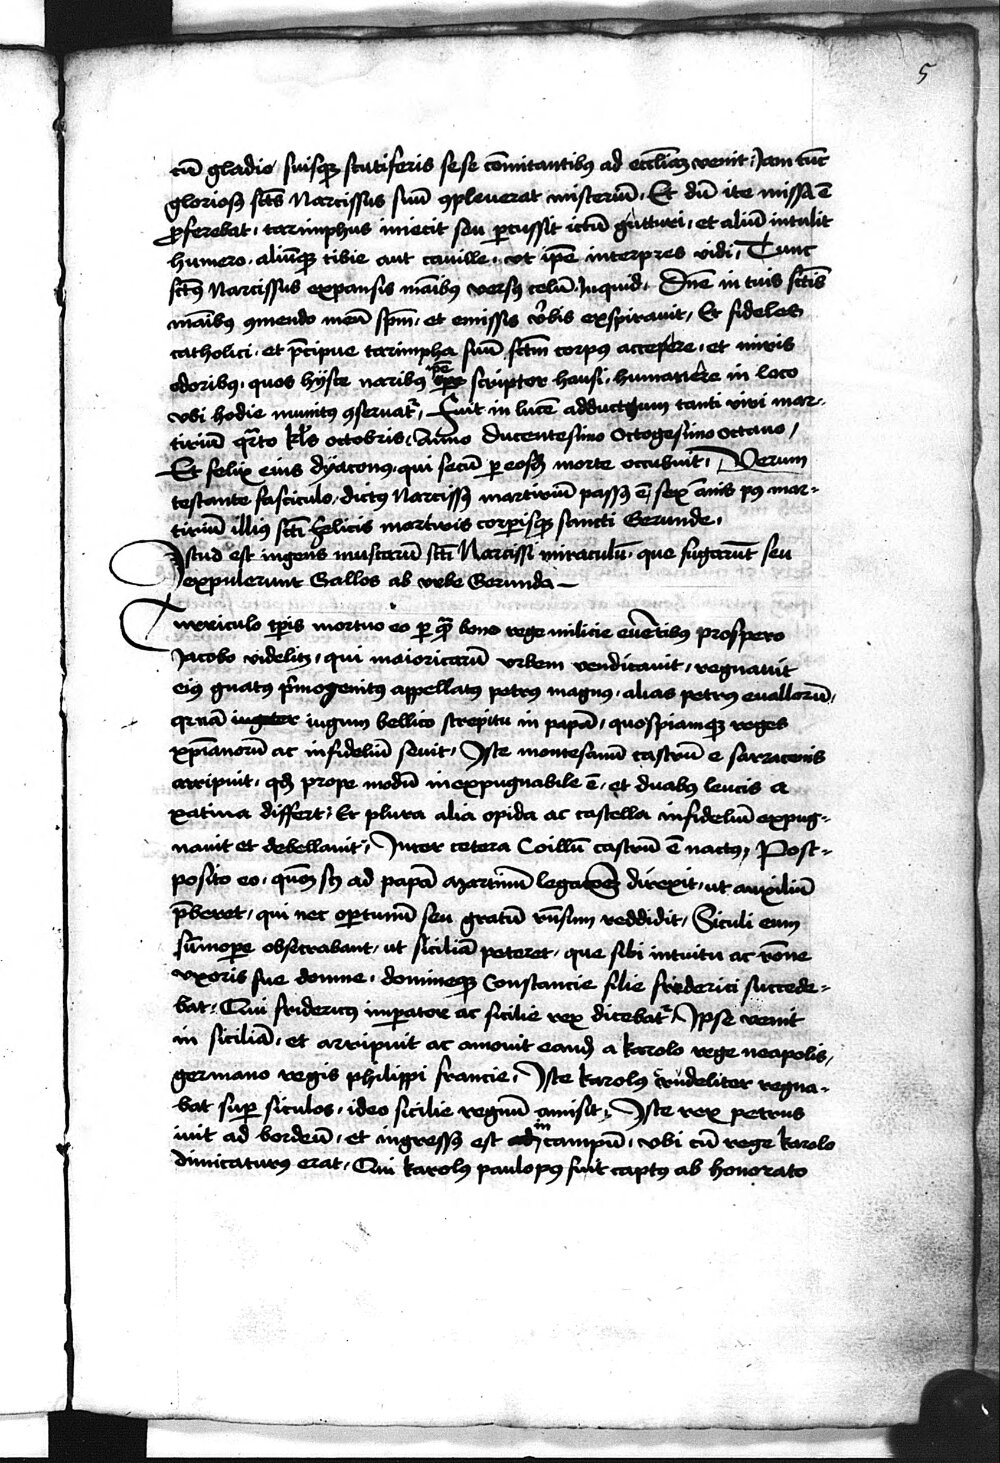 5
cū gladio suisqꝫ scutiferis sese cōmitantibꝰ ad eccliā venit. Jam tūc
gloriosꝰ sct̄s Narcissus suū ꝯpleuerat misteriū. Et dū ite missa ē
ꝓferebat. tarimphus iniecit seu ꝑcussit ictū gutturi. et aliū intulit
humero. aliūqꝫ tibie aut cauille. vt ip̄e interpres vidi. Tunc
sct̄ꝰ Narcissus expansis māibꝰ versꝰ celū. Inquid. Dn̄e in tuis sct̄is
māibꝰ ꝯmendo meū sp̄m. et emissis v̄bis expirauit. Et fideles
catholici. et p̄cipue tarimpha suū sct̄m corpus accepere. et miris
odoribꝰ. quos hysce naribꝰ ip̄e scriptor hausi. humaniere in loco
vbi hodie munitus ꝯseruat̄. Fuit in lucē adductum tanti viri mar-
tiriū qrto kls octobris. Anno Ducentesimo octogesimo octauo /
Et felix eius dyaconꝰ. qui secū ꝑ eosdꝫ morte occubuit. Verum
testante fasciculo. dictꝰ Narcissꝰ martiriū passꝰ ē. sex ānis pꝰ mar-
tiriū illiꝰ sct̄i felicis martiris corpisqꝫ sancti Gerunde.
Istud est ingens muscarū sct̄i Narcissi miraculū. que fugarūt seu
expulerunt Gallos ab vrbe Gerunda
Curriculo tp̄is mortuo eo ꝑ qꝫ bono rege milicie euētibus prospero
Jacobo videlitꝫ. qui maioricarū vrbem vendicauit. regnauit
eiꝰ gnatꝰ p̄mogenitꝰ appellatꝰ petrꝰ magnꝰ. alias petrꝰ euallorū.
iugum bellico strepitu in papā. quospiamqꝫ reges
xp̄ianorū ac infideliū seuit. Iste montesanū castrū e sarracenis
arripuit. qđ prope modū inexpugnabile ē. et duabꝰ leucis a
xatiua differt. Et plura alia opida ac castella infideliū expug-
nauit et debellauit. Inter cetera Coillū castrū ē nactꝰ. Post-
posito eo. ad papā Martinū legatōes direxit. ut auxiliū
p̄beret. qui nec oportunū seu gratū rn̄sum reddidit. Siculi eum
sūmope obsecrabant. ut siciliā peteret. que sibi intuitu ac rōne
vxoris sue domne. domineqꝫ Constancie filie friderici succede-
bat. Cui fridericꝰ imperator ac sicilie rex dicebat̄. Ipse venit
in siciliā. et arripuit ac amouit eandꝫ a karolo rege neapolis.
germano regis philippi francie. Iste karolꝰ crudeliter regna-
bat sup siculos. ideo sicilie regnū amisit. Iste rex petrus
iuit ad bordeū. et ingressꝰ est in campū. vbi cū rege karolo
dimicaturꝰ erat. Cui karolꝰ paulo pꝰ fuit captꝰ ab honorato